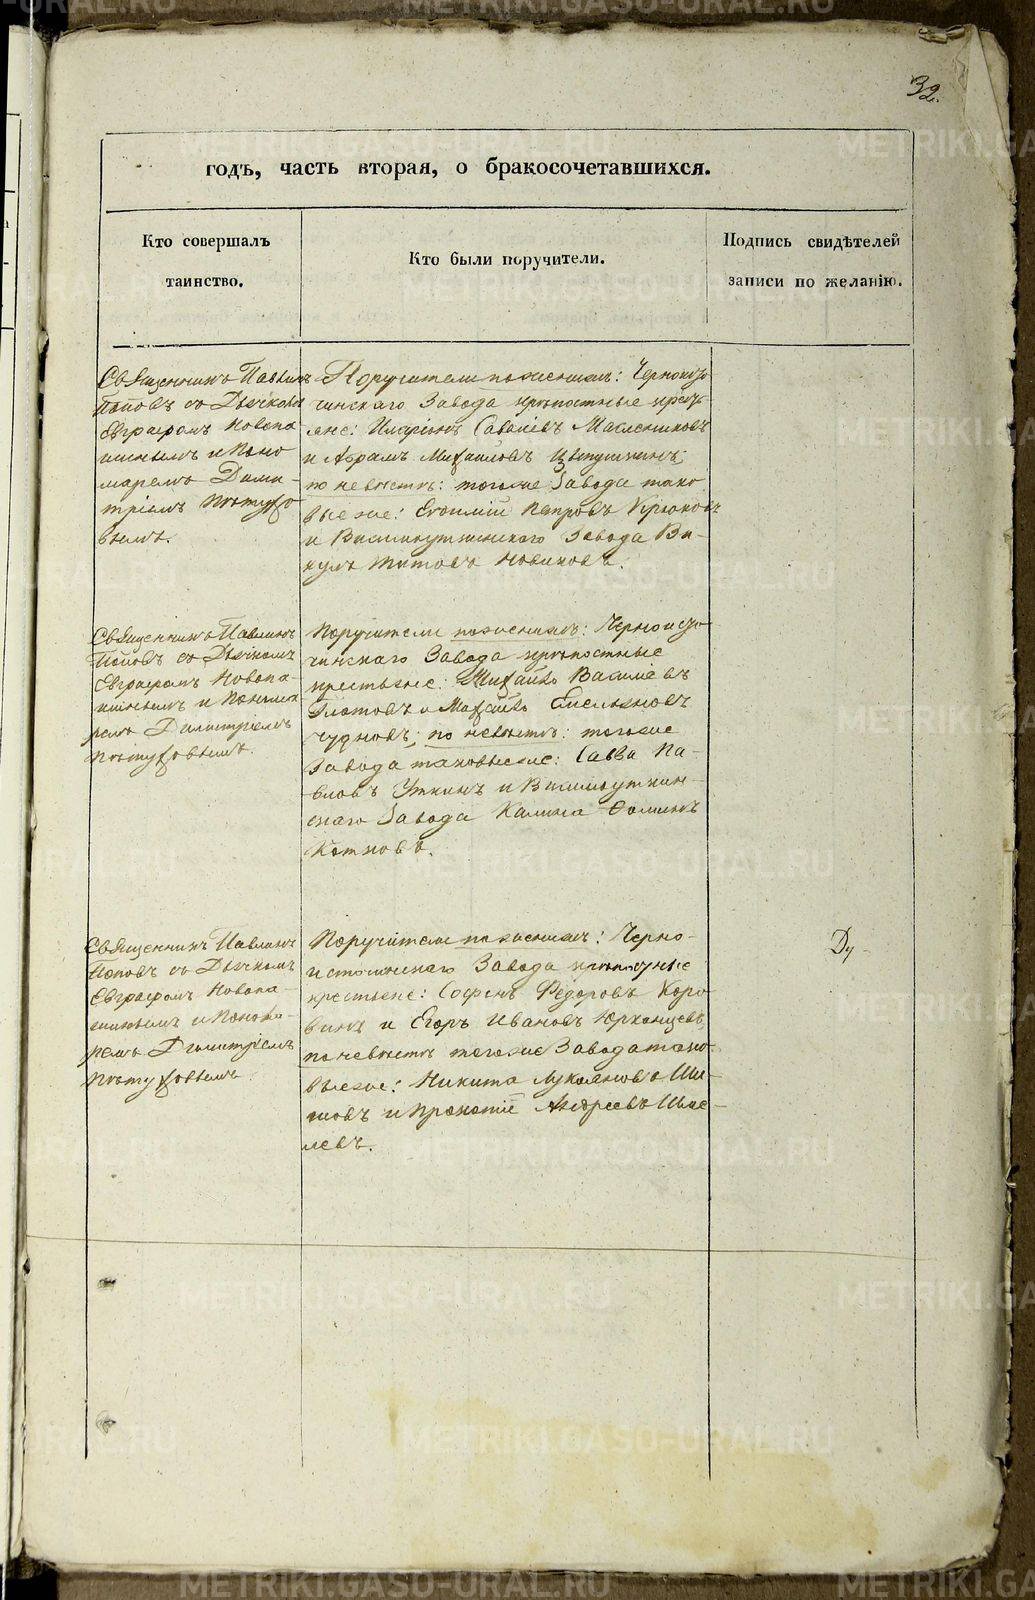 32.
годъ, часть вторая, о бракосочетавшихся.
Кто совершалъ
таинство.
Кто были поручители.
Подпись свидѣтелей
записи по желанію.
Священникъ Павлинъ
Поповъ съ Дьячкомъ
Евграфомъ Новопа-
шинымъ и Поно
маремъ Дими-
тріемъ
Поручители по женихѣ: Черноисто
чинскаго Завода крѣпостные кресть
яне: Иларіонъ Савалiевъ Масленниковъ
и Абрамъ Михайловъ
по невѣстѣ: тогоже Завода тако
выеже: Евѳимій Петровъ Крюковъ
и Висимоуткинскаго Завода Ви-
кулъ Титовъ Новиковъ.
Священникъ Павлинъ
Поповъ съ Дьячкомъ
Евграфомъ Новопа-
шинымъ и Понома
ремъ Димитріемъ
Поручители по женихѣ: Черноисто
чинскаго Завода крѣпостные
крестьяне: Михайло Василіевъ
Глотовъ и Михайло Емельяновъ
Чудновъ; по невѣстѣ: тогоже
Завода таковыеже: Савва Па-
вловъ Уткинъ и Висимоуткин-
скаго Завода Калина Ѳоминъ
Священникъ Павлинъ
Поповъ съ Дьячкомъ
Евграфомъ Новопа-
шинымъ и Понома-
ремъ Димитріемъ
Поручители по женихѣ: Черно-
источинскаго Завода крѣпостные
крестьяне: Софонъ Федоровъ Коро
винъ и Егоръ Ивановъ Юрханцевъ,
по невѣстѣ тогоже Завода тако-
выеже: Никита Лукояновъ Ши-
ловъ и Прокопій Андреевъ Шме-
левъ.
Ду-
METRIKI.GASO-URAL.RU